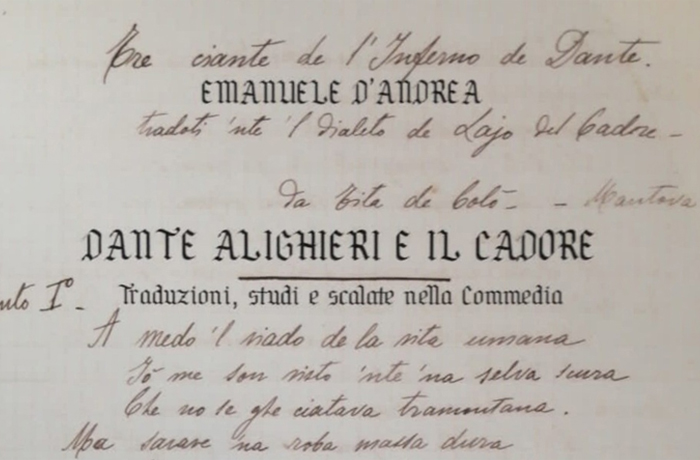 Tre ciante de l'Inferno de Dante.
EMANUELE D'ANDREA
tradoti 'nte 'l dialeto de Lajo del Cadore -
da Tita de Colò - - Mantova
DANTE ALIGHIERI E IL CADORE
nto I° -
Traduzioni, studi e scalate nella Commedia
A medo 'l viado de la vita umana
Iò me son visto 'nte 'na selva scura
Che no se ghe ciatava tramontana.
Ma sarave 'na roba massa dura